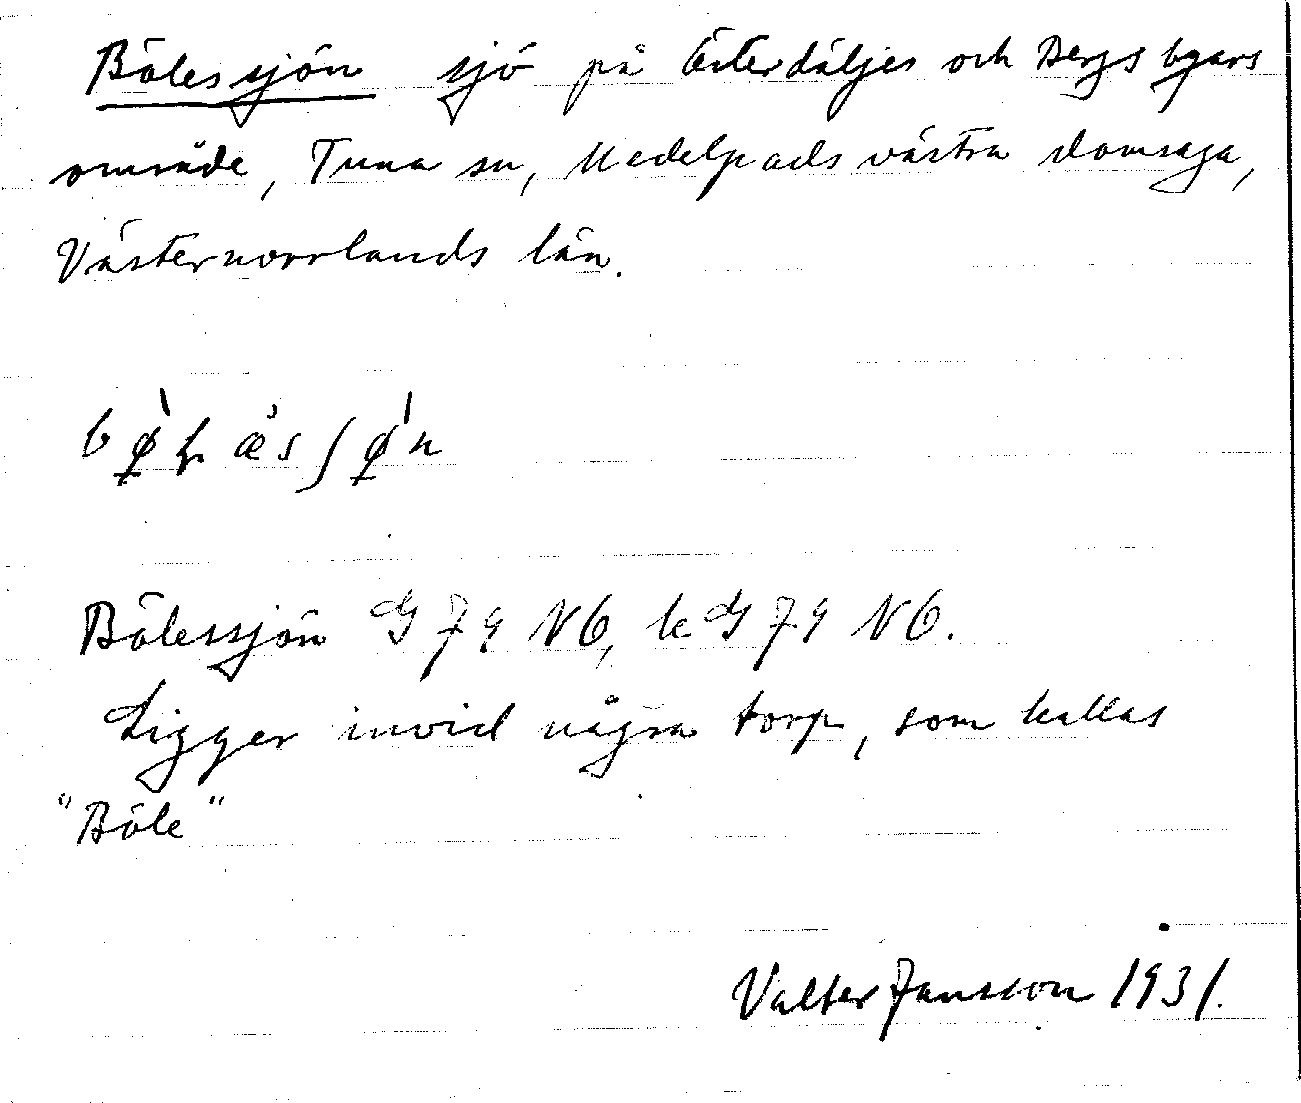 Bölessjön sjö på Österdäljes och Bergs byars
område, Tuna sn, Medelpads västra domsaga,
Västernorrlands län.
Bölessjön GJ 79 NO, kGJ 79 NO.
Ligger invid några torp, som kallas
"Böle"
Valter Jansson 1931.